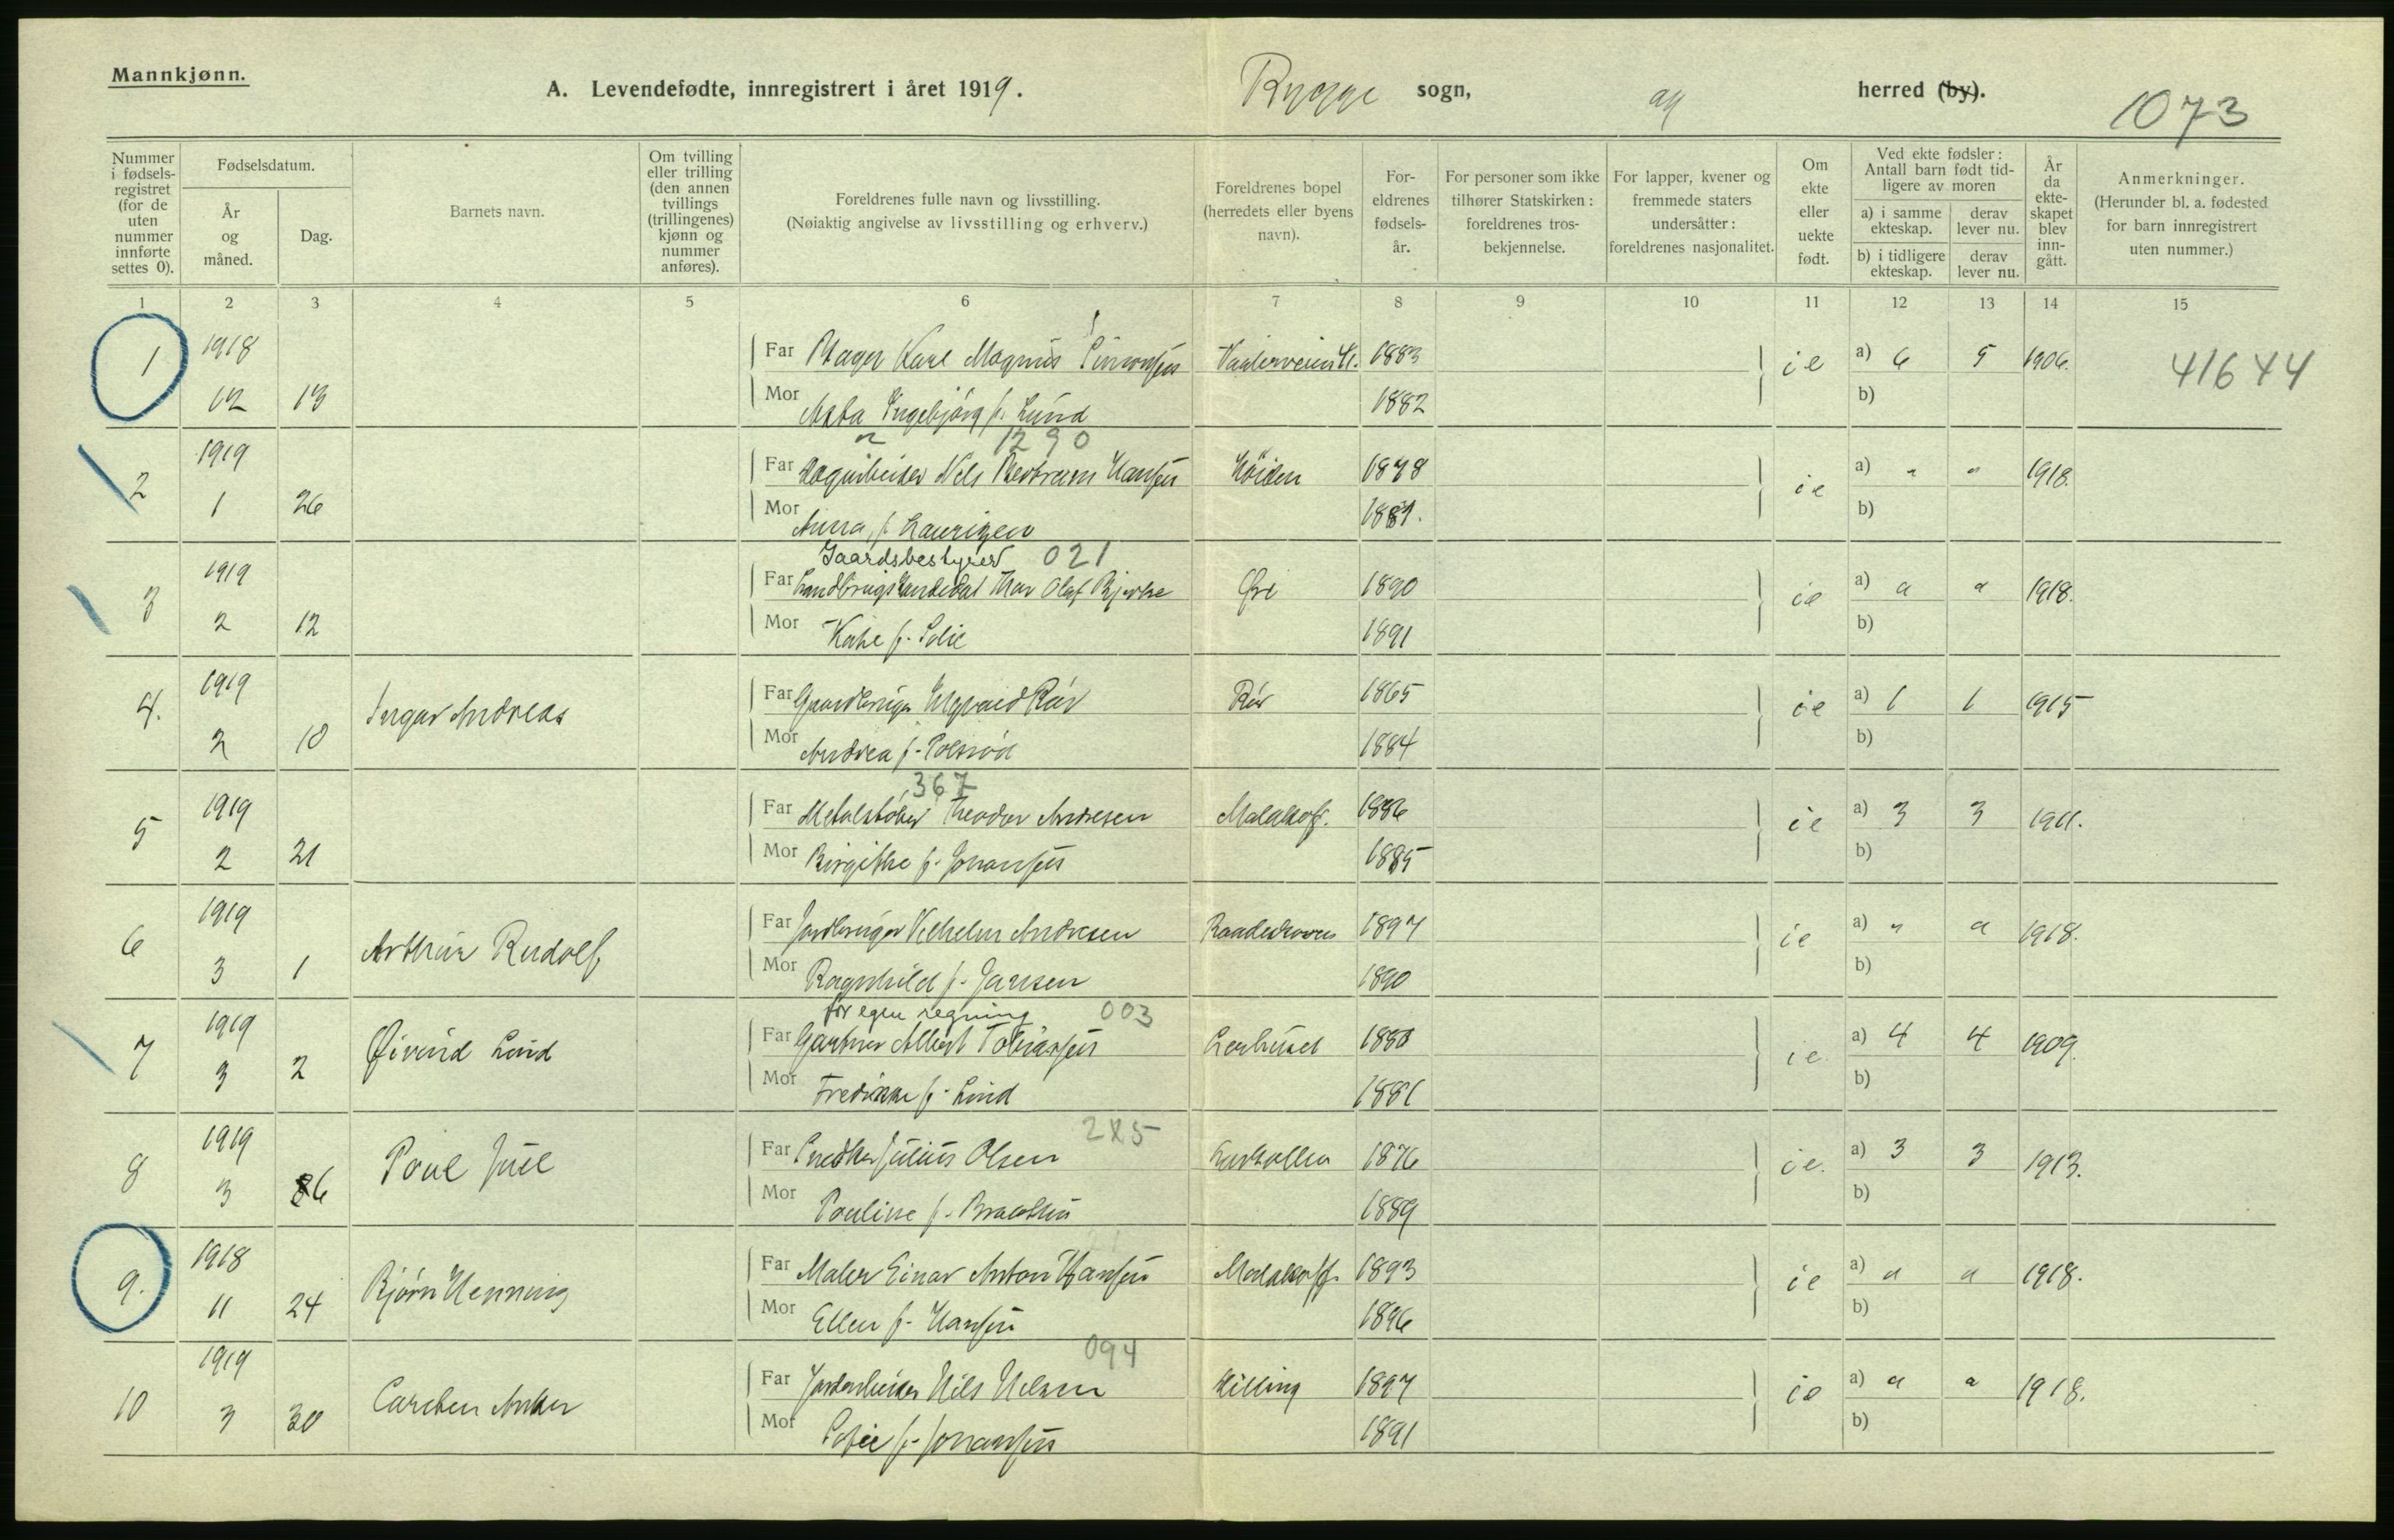 Mannkjønn.
A. Levendefødte, innregistrert i året 1919.
Rygge sogn, herred (by).
1073
Nummer i fødsels-registret (for de uten nummer innførte settes 0).
Fødselsdatum.
År og måned.
Dag.
Barnets navn.
Om tvilling eller trilling (den annen tvillings (trillingenes) kjønn og nummer anføres).
Foreldrenes fulle navn og livsstilling.
(Nøiaktig angivelse av livsstilling og erhverv.)
Foreldrenes bopel (herredets eller byens navn).
For-eldrenes fødsels-år.
For personer som ikke tilhører Statskirken: foreldrenes tros-bekjennelse.
For lapper, kvener og fremmede staters undersåtter: foreldrenes nasjonalitet.
Om ekte eller uekte født.
Ved ekte fødsler: Antall barn født tid-ligere av moren
a) i samme ekteskap.
derav lever nu.
b) i tidligere ekteskap.
derav lever nu.
År da ekte-skapet blev inn-gått.
Anmerkninger.
(Herunder bl. a. fødested for barn innregistrert uten nummer.)
1 2 3 4 5 6 7 8 9 10 11 12 13 14 15
1 1918 Far Karl Magnus Simonsen 1883 ie a) 6 5 1906. 41644
12 13 Mor Asta Ingebjørg f. Lund 1882 b)
1290
2 1919 Far Nils Bertram Hansen Høiden 1878 ie a) " " 1918.
1 26 Mor Anna f. Lauritzen b)
Gaardsbestyrer 021
3 1919 Far Landbrugskandidat Thor Olaf Bjerke 1890 ie a) " " 1918.
2 12 Mor Kathe f. Solie 1891 b)
4. 1919 Ingar Andreas Far Gaardbruger Rør Rør 1865 ie a) 1 1 1915
2 10 Mor Andrea f. 1884 b)
367
5 1919 Far Metalstøber Theodor Andresen Malakoff. 1886 ie a) 3 3 1911.
2 21 Mor Birgithe f. Johansen 1885 b)
6 1919 Arthur Rudolf Far Jordbruger Vilhelm Andresen 1897 ie a) " " 1918.
3 1 Mor Ragnhild f. Jansen 1890 b)
for egen regning 003
7 1919 Øivind Lind Far Gartner Albert Tobiassen 1880 ie. a) 4 4 1909.
3 2 Mor Fredrikke f. Lind 1881 b)
8 1919 Poul Juel Far Snedker Julius Olsen 1876 ie. a) 3 3 1913.
3 6 Mor Pauline f. 1889 b)
9. 1918 Bjørn Henning Far Maler Einar Anton Hansen Malakoff. 1893 ie a) " " 1918.
11 24 Mor Ellen f. Hansen 1896 b)
094
10 1919 Carsten Anker Far Jordarbeider Nils Nilsen Dilling 1897 ie a) " " 1918.
3 30 Mor Sofie f. Johansen 1891 b)